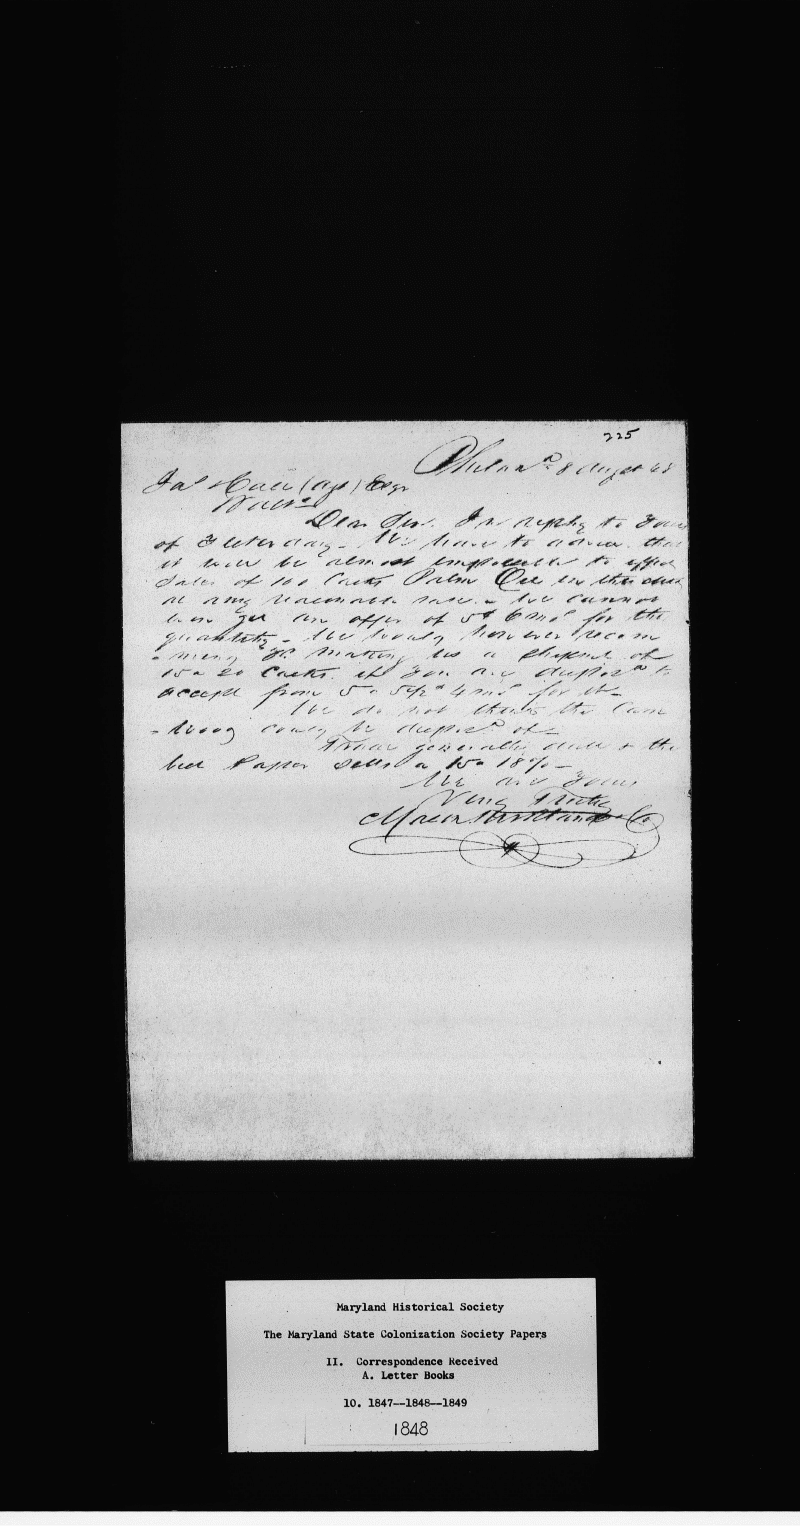 225
Philad.a 8 Augst 48
Jas Hall (agt) Esqr
Balto
Dear Sir. In reply to Yours
of Yesterday. We have to advise that
it will be almost impossible to effect
Sales of 100 Casks Palm Oil in this
at any reasonable rate. We cannot
even get an offer of 5¢ 6 mos for the
quantity. We would however recom
-mend Yr. making us a Shipmt of
15 a 20 Casks. if You are disposed to
accept from 5 a 4 mos for it.
We do not think the Cam
-wood could be disposd of
Trade generally dull & the
best Paper Sells a 15 a 18%
We are Yours
Very Truly
& Co
Maryland Historical Society
The Maryland State Colonization Society Papers
II. Correspondence Received
A. Letter Books
10. 1847--1848--1849
1848